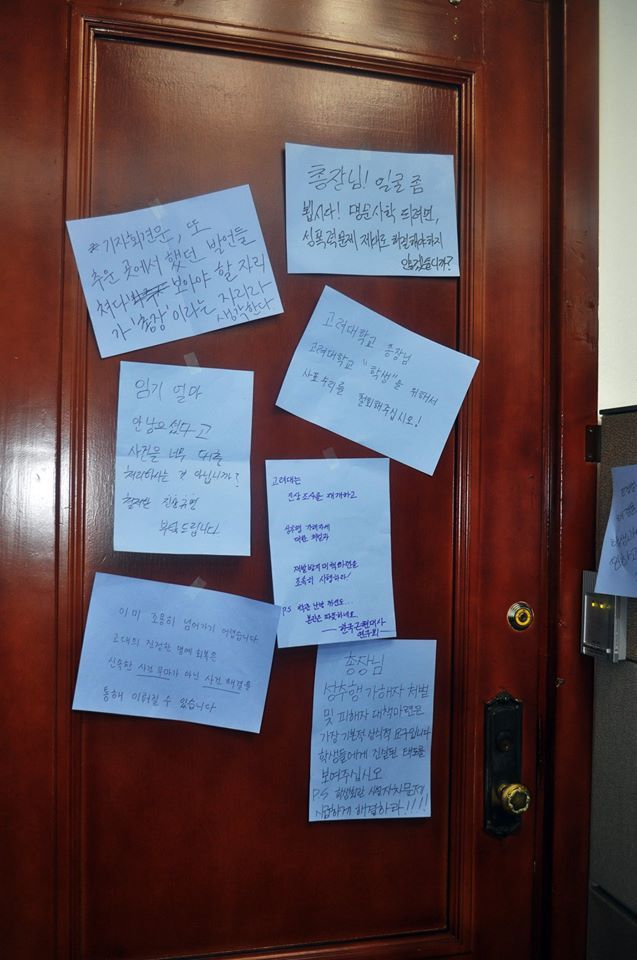 총장님! 얼굴 좀
봅시다! 명문사학 되려면,
성폭력문제 제대로 해결해야하지
않겠습니까?
※기자회견문, 또
추운 곳에서 했던 발언들
쳐다 보아야 할 자리
가 '총장'이라는 자리라
생각한다
고려대학교 총장님
고려대학교 "학생"을 위해서
사표수리를 철회해주십시오!
임기 얼마
안남으셨다고
사건을 너무 대충
처리하시는 것 아닙니까?
철저한 진상규명
부탁드립니다
고려대는
진상조사를 재개하고
성추행 가해자에
대한 처벌과
재발방지대책마련을
조속히 시행하라!
P.S 학관 난방
본관은 따뜻하네요
한국근현대사
연구회
이미 조용히 넘어가기 어렵습니다
고대의 진정한 명예 회복은
신속한 사건 무마가 아닌 사건 해결을
통해 이뤄질 수 있습니다
총장님
성추행 가해자 처벌
및 피해자 대책마련은
가장 기본적 상식적 요구입니다
학생들에게 진실된 태도를
보여주십시오
P.S 학생회관
시급하게 해결하라!!!!